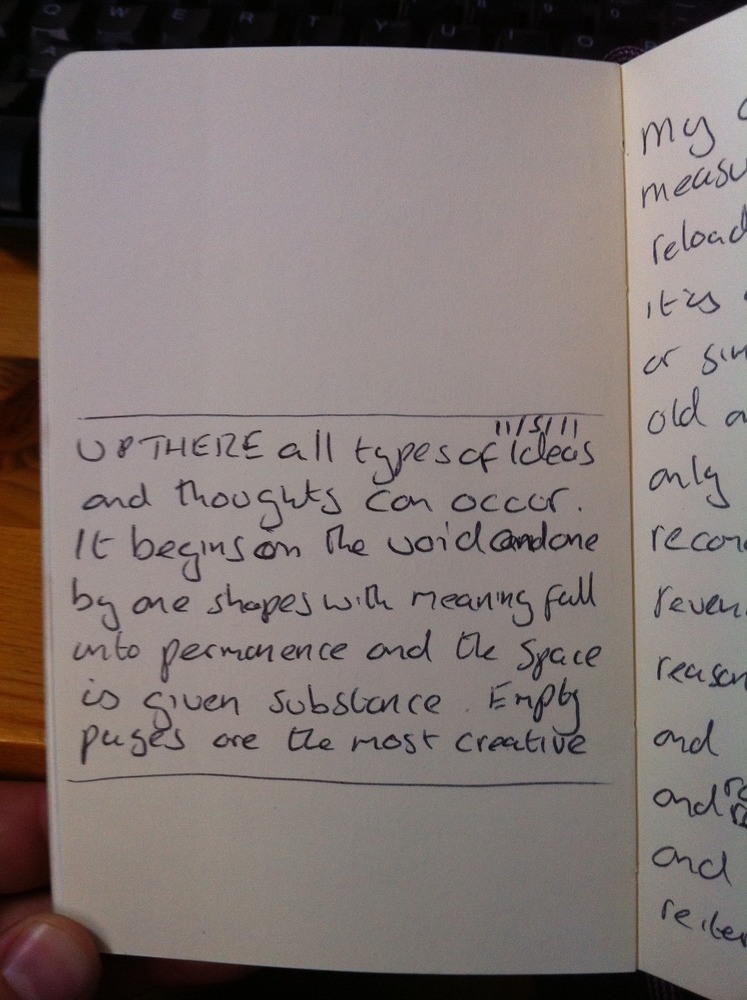 11/5/11
UP THERE all types of ideas
and thoughts can occur.
It begins on the void and one
by one shapes with meaning fall
into permanence and the space
is given substance. Empty
pages are the most creative
my
measu
reload
it is
or sim
old a
only
recor
reven
reason
and
and
and
reiter
Q W E R T Y U I O
A